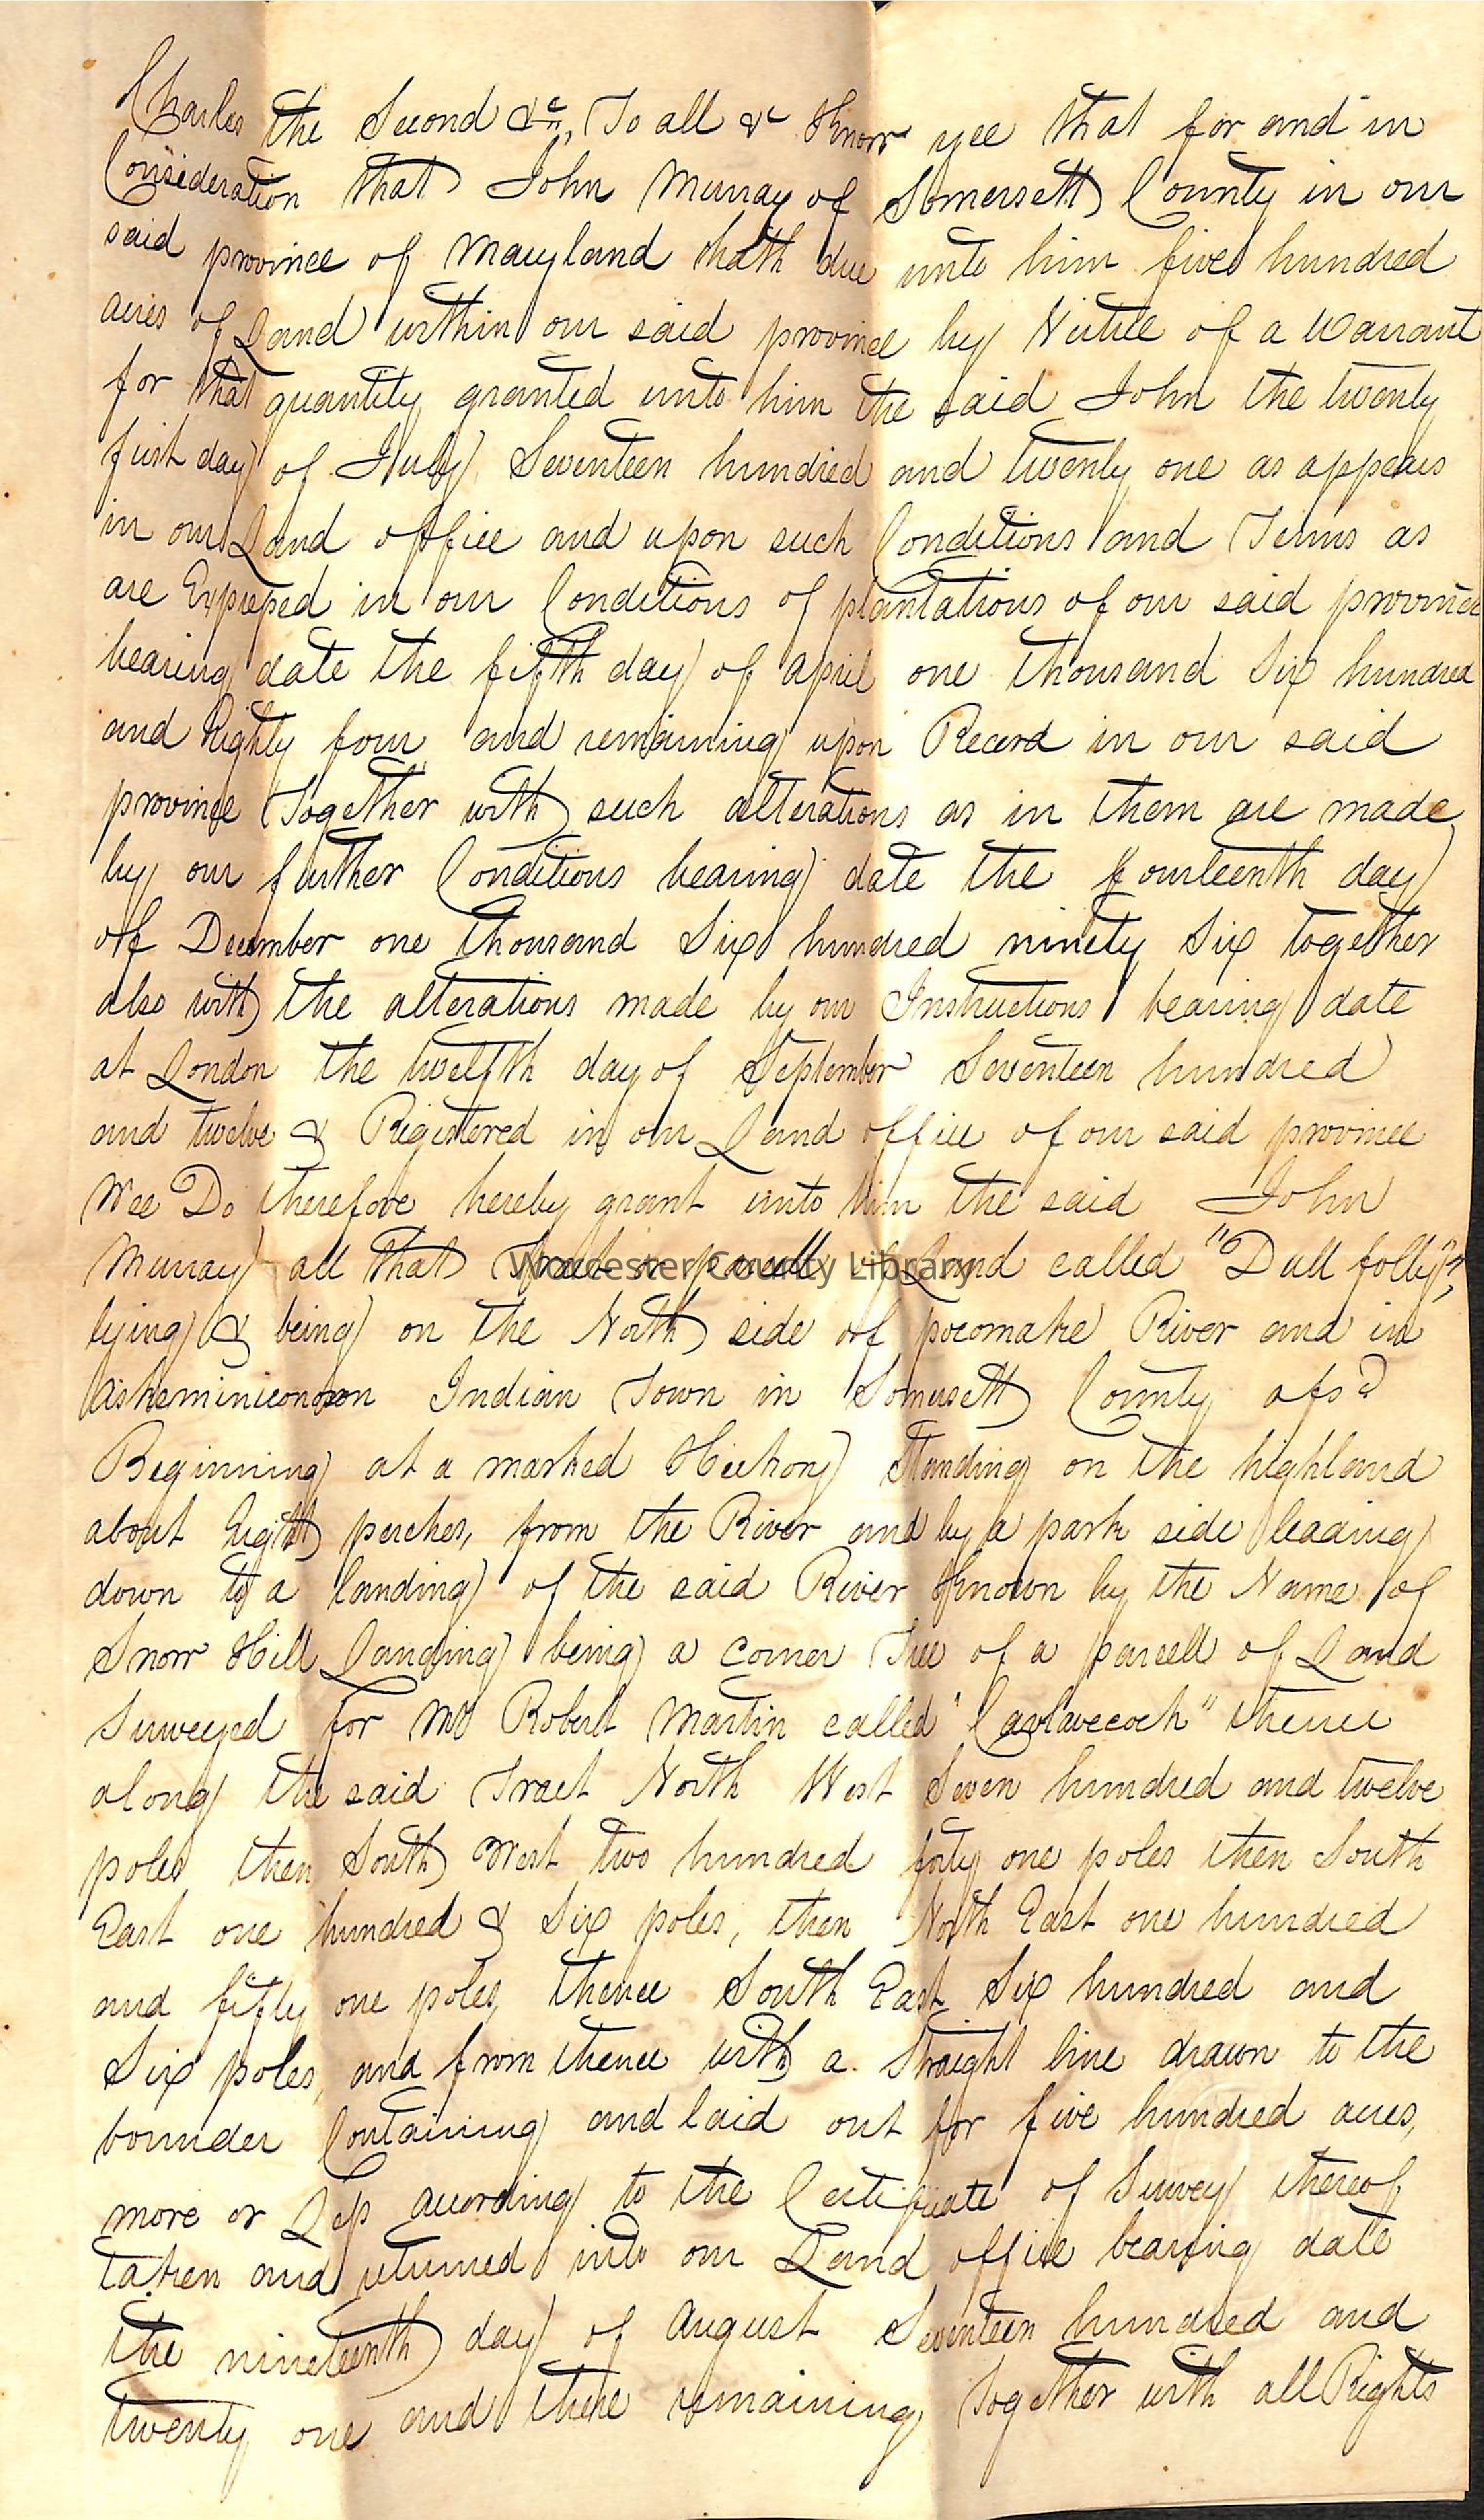 Charles the Second &c., To all &c Know yee that for and in
Consideration that John Murray of Somersett County in our
said province of Maryland hath due unto him five hundred
acres of Land within our said province by Virtue of a Warrant
for that quantity granted unto him the said John the twenty
first day of July Seventeen hundred and twenty one as appears
in our Land office and upon such Conditions and Terms as
are Expressed in our Conditions of plantations of our said province
bearing date the fifth day of April one thousand Six hundred
and Eighty four and remaining upon Record in our said
province Together with such alterations as in them are made
by our further Conditions bearing date the fourteenth day
of December one thousand Six hundred ninety Six together
also with the alterations made by our Instructions bearing date
at London the twelfth day of September Seventeen hundred
and twelve & Registered in our Land office of our said province
Wee Do therefore hereby grant unto him the said John
Murray all that Tract or parcell of Land called "Dull folly",
Worcester County Library
lying & being on the North side of pocomake River and in
Askeminiconson Indian Town in Somersett County afsd
Beginning at a marked Hickory Standing on the highland
about Eight perches, from the River and by a parth side leading
down to a landing of the said River Known by the Name of
Snow Hill Landing being a corner Tree of a parcell of Land
Surveyed for Mr Robert Martin called "Carlavecock" thence
along the said Tract North West Seven hundred and twelve
poles then South West two hundred forty one poles then South
East one hundred & Six poles, then North East one hundred
and fifty one poles, thence South East Six hundred and
Six poles, and from thence with a Straight line drawn to the
bounder Containing and laid out for five hundred acres,
more or Less according to the Certificate of Survey thereof
taken and returned into our Land office bearing date
the nineteenth day of August Seventeen hundred and
twenty one and there remaining, Together with all Rights